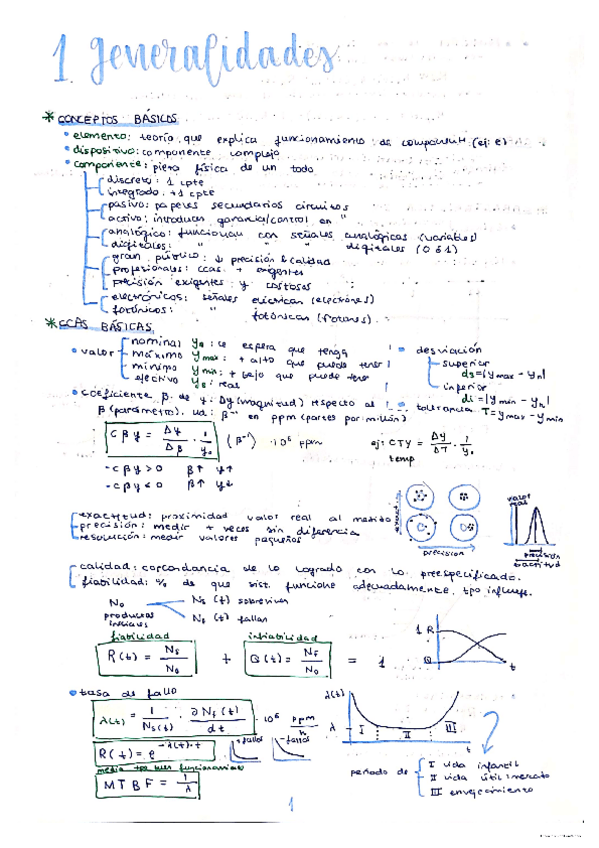 1. generalidades
* CONCEPTOS BÁSICOS
• elemento: teoría que explica funcionamiento de (ej: e)
• dispositivo: componente complejo
• componente: pieza física de un todo
discreto: 1 cpte
integrado: +1 cpte
pasivo: papeles secundarios circuitos
activo: introducen ganancia/control en "
analógico: funcionan con señales analógicas (variables)
digitales: " " " digitales (0 ó 1)
gran público: ↓ precisión & calidad
profesionales: ccas. + exigentes
precisión exigentes y costosos
electrónicos: señales eléctricas (electrones)
fotónicos: " fotónicas (fotones).
* CCAS BÁSICAS
• valor
nominal yn: se espera que tenga
máximo ymax: + alto que puede tener
mínimo ymin: + bajo que puede tener
efectivo ye: real
• desviación
superior
ds = |ymax - yn|
inferior
di = |ymin - yn|
• tolerancia T = ymax - ymin
• coeficiente β de y: Δy (magnitud) respecto al
β (parámetro). ud: β⁻¹ en ppm (partes por millón)
Cβy = Δy/Δβ · 1/yo (β⁻¹) · 10⁶ ppm
ej: CTY = Δy/ΔT · 1/yo
temp
- cβy > 0 β↑ y↑
- cβy < 0 β↑ y↓
exactitud: proximidad valor real al medido
precisión: medir + veces sin diferencia
resolución: medir valores pequeños
exact.
precisión
valor real
precisión
exactitud
calidad: concordancia de lo logrado con lo preespecificado.
fiabilidad: % de que sist. funcione adecuadamente, tpo influye.
No
productos iniciales
Ns (t) sobreviven
Nf (t) fallan
fiabilidad
infiabilidad
R(t) = Ns/No + Q(t) = Nf/No = 1
1 R
Q
t
• tasa de fallo
λ(t) = 1/Ns(t) · ∂Nf(t)/dt · 10⁶ ppm/h
R(t) = e^-λ(t)·t
+fallos
-fallos
media tpo buen funcionamiento
MTBF = 1/λ
λ(t)
λ
I
II
III
t
periodo de
I vida infantil
II vida útil
III envejecimiento
1